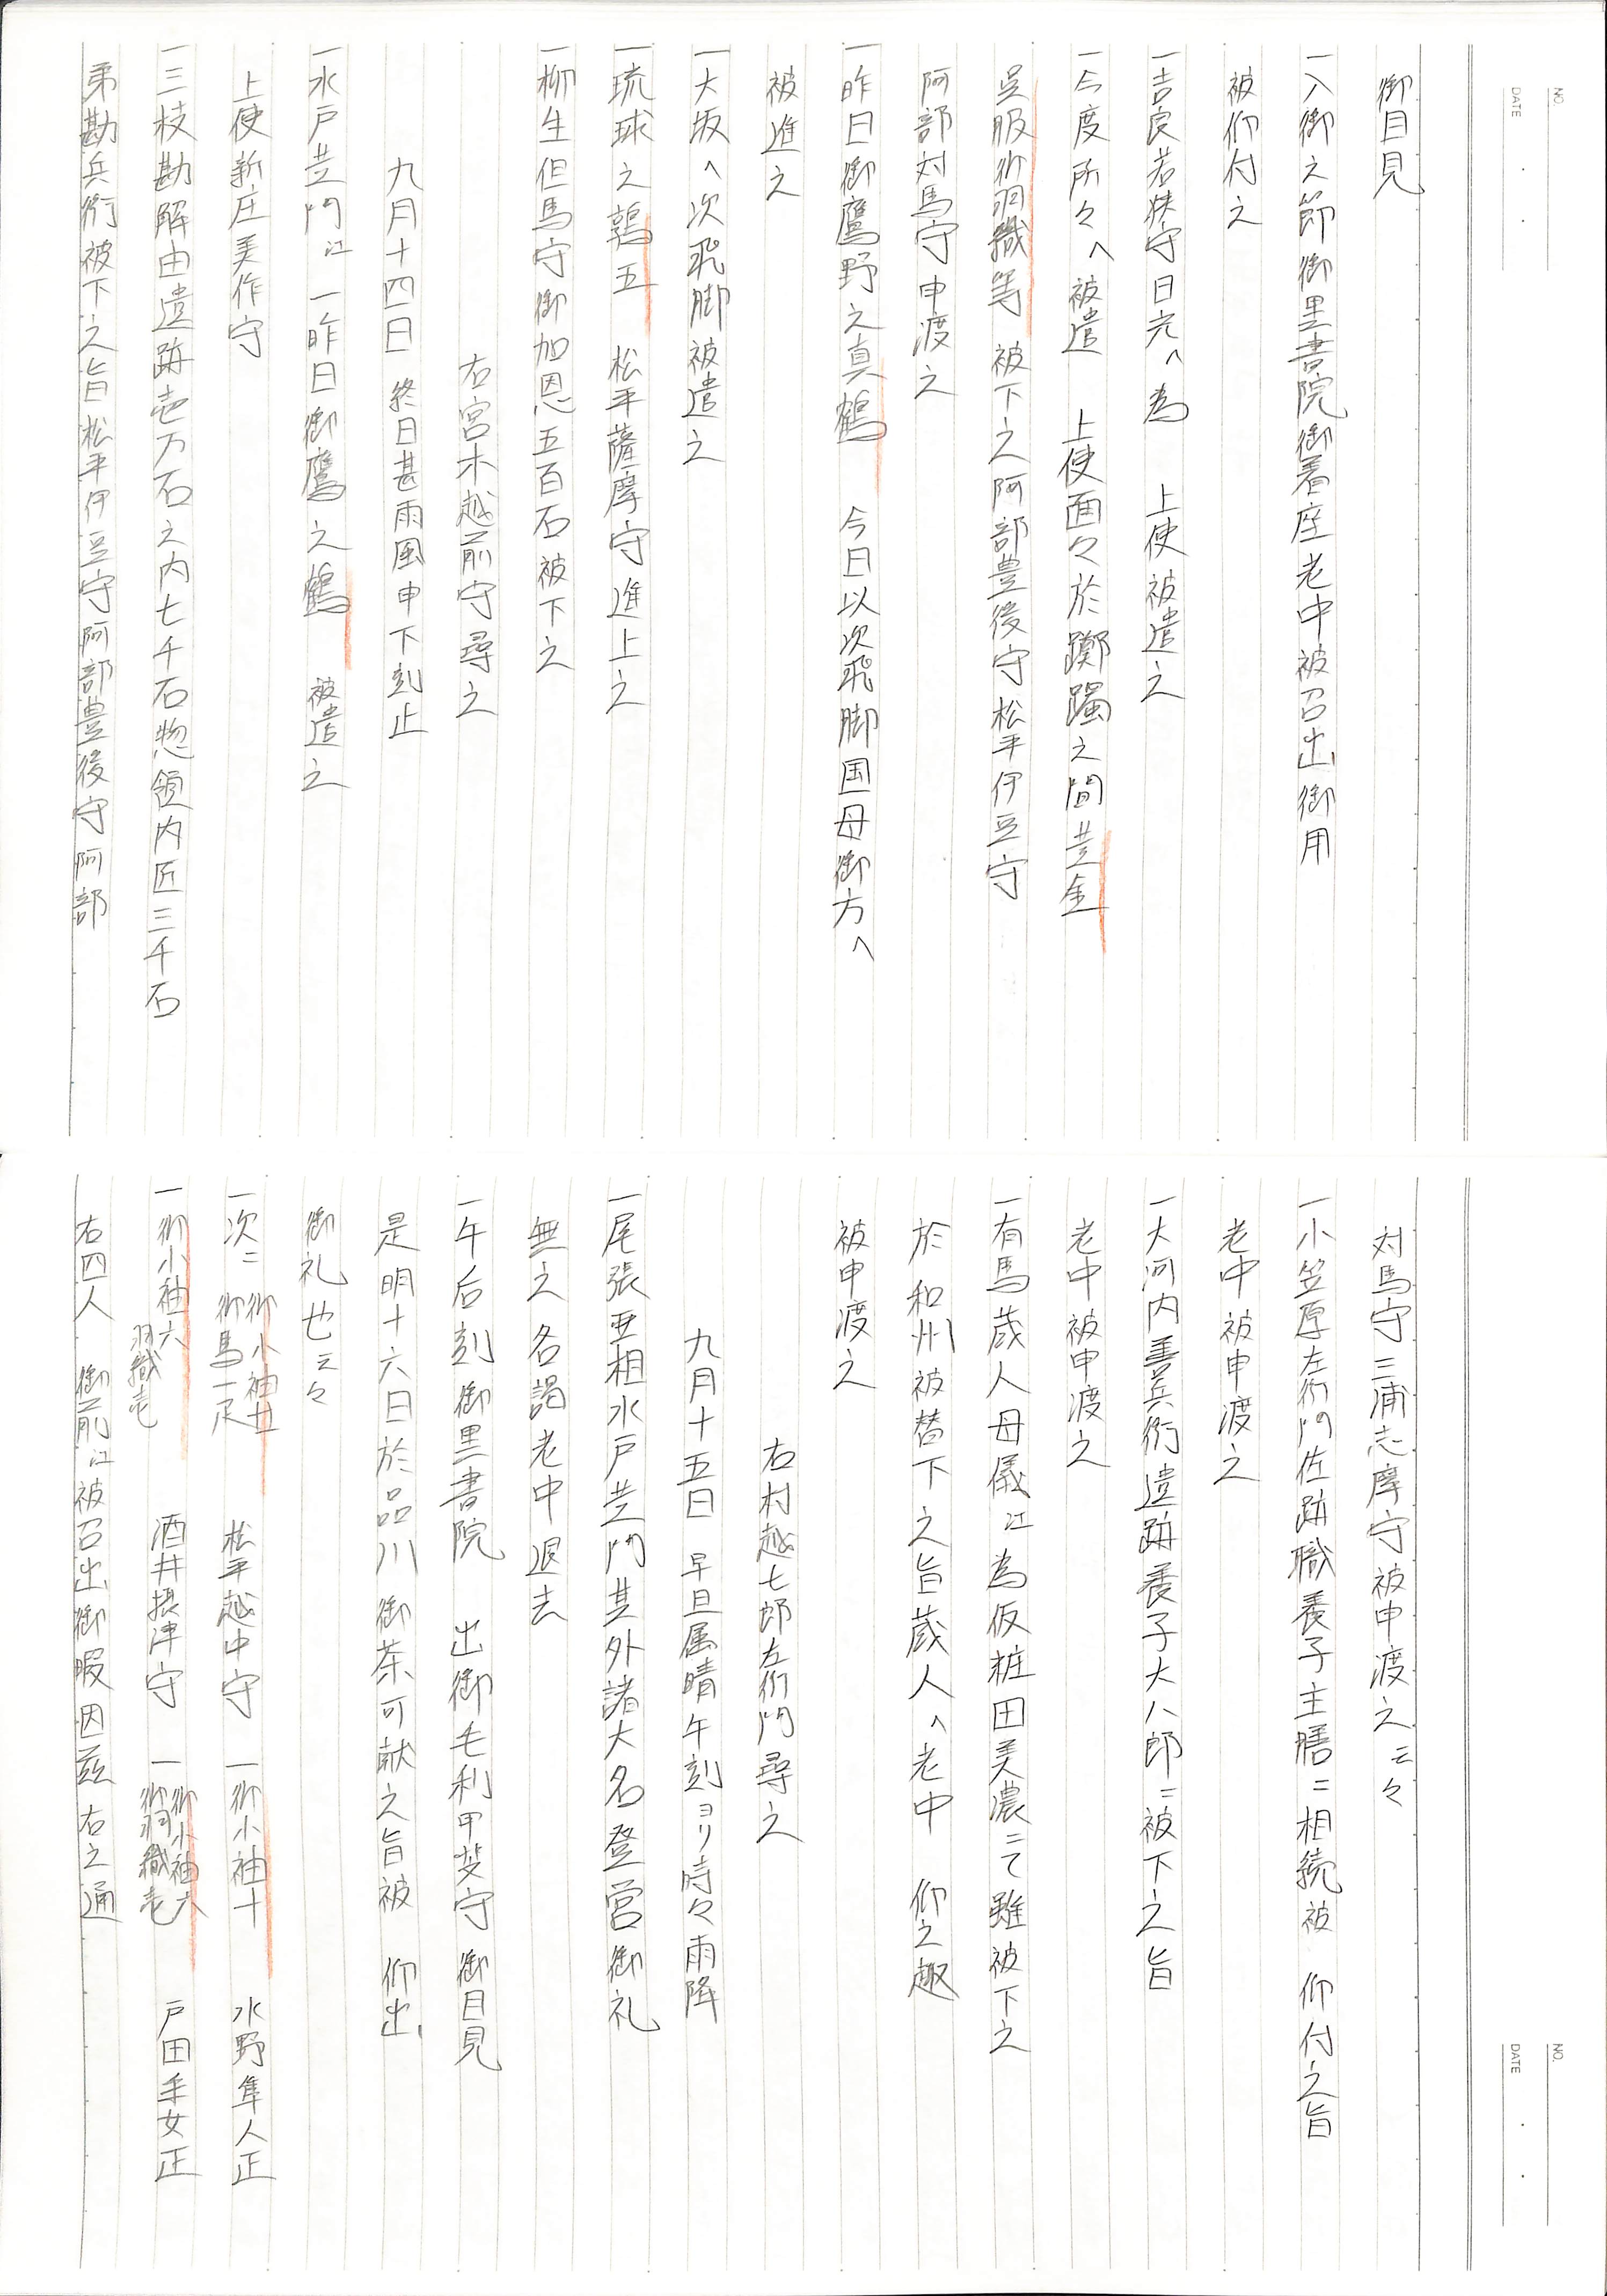 御目見
一入御之節御黒書院御着座老中被召出御用
被仰付之
一吉良若狭守日光へ為　上使被遣之
一今度所々へ被遣　上使面々於躑躅之間並金
呉服御羽織等　被下之阿部豊後守松平伊豆守
阿部対馬守申渡之
一昨日御鷹野之真鶴　今日以次飛脚国母御方へ
被進之
一大坂へ次飛脚被遣之
一琉球之鶉五　松平薩摩守進上之
一柳生但馬守御加恩五百石被下之
右宮木越前守尋之
九月十四日　終日甚雨風申下刻止
一水戸黄門江一昨日御鷹之鶴　被遣之
上使新庄美作守
一三枝勘解由遺跡壱万石之内七千石惣領内匠三千石
弟勘兵衛被下之旨松平伊豆守阿部豊後守阿部
対馬守三浦志摩守被申渡之云々
一小笠原左衛門佐跡職養子主膳ニ相続被　仰付之旨
老中被申渡之
一大河内善兵衛遺跡養子大八郎ニ被下之旨
老中被申渡之
一有馬蔵人母儀江為仮粧田美濃ニて雖被下之
於和州被替下之旨蔵人へ老中　仰之趣
被申渡之
右村越七郎左衛門尋之
九月十五日　早旦属晴午刻ヨリ時々雨降
一尾張亜相水戸黄門其外諸大名登営御礼
無之各謁老中退去
一午后刻御黒書院　出御毛利甲斐守御目見
是明十六日於品川御茶可献之旨被　仰出
御礼也云々
一次ニ　御小袖十　御馬一疋　松平越中守　一御小袖十　水野隼人正
一御小袖六　羽織壱　酒井摂津守　一御小袖六　御羽織壱　戸田采女正
右四人　御前江被召出御暇因茲右之通
NO.
DATE　・　・
NO.
DATE　・　・